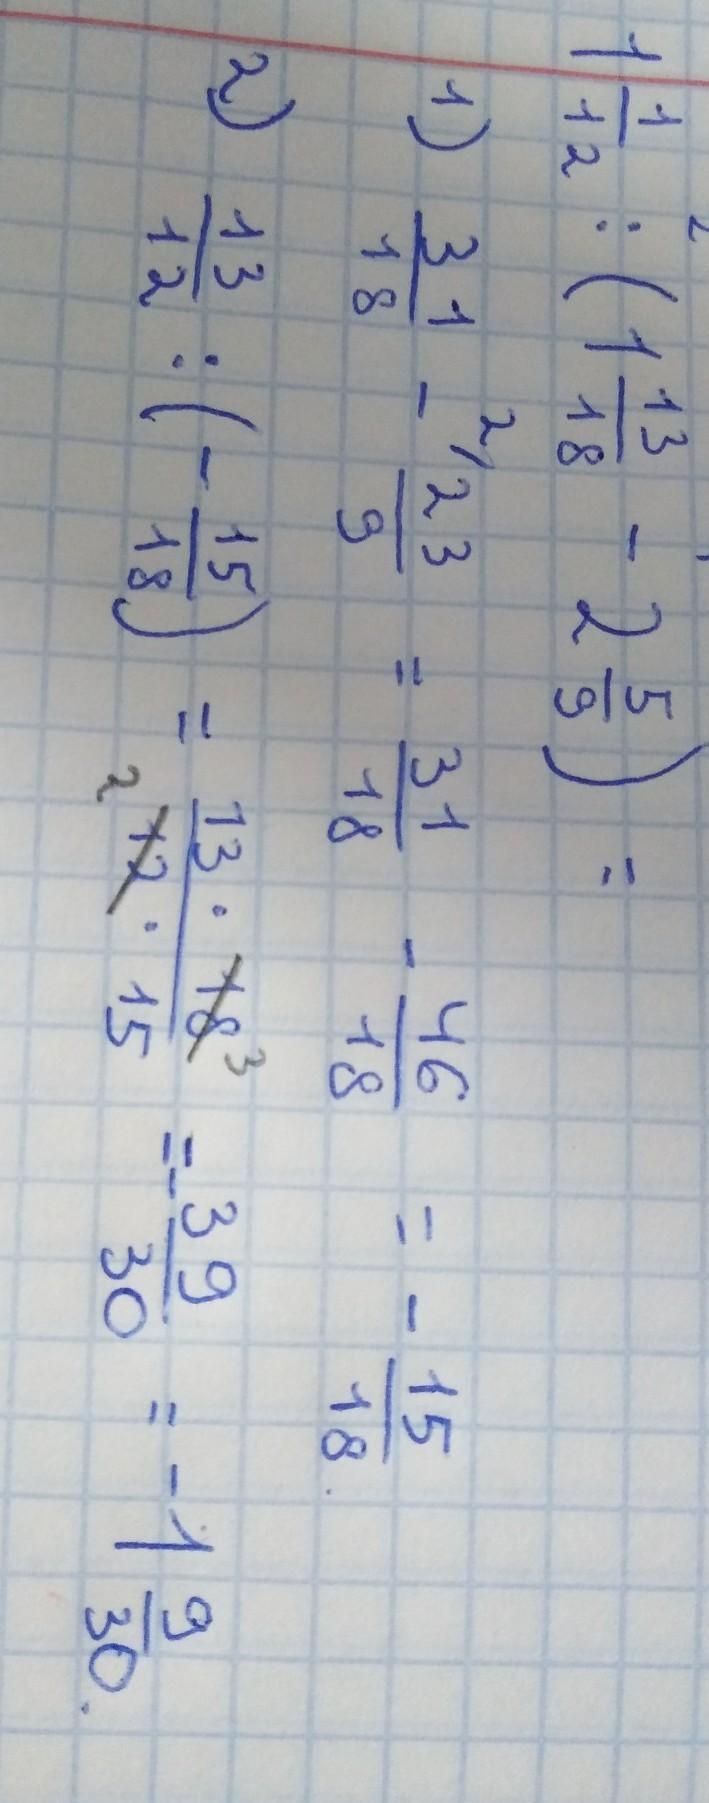 1 1/12 : (1 13/18 - 2 5/9) =
1) 31/18 - 2/ 23/9 = 31/18 - 46/18 = - 15/18.
2) 13/12 : (- 15/18) = 13 · 18 3/2 12 · 15 = - 39/30 = - 1 9/30.